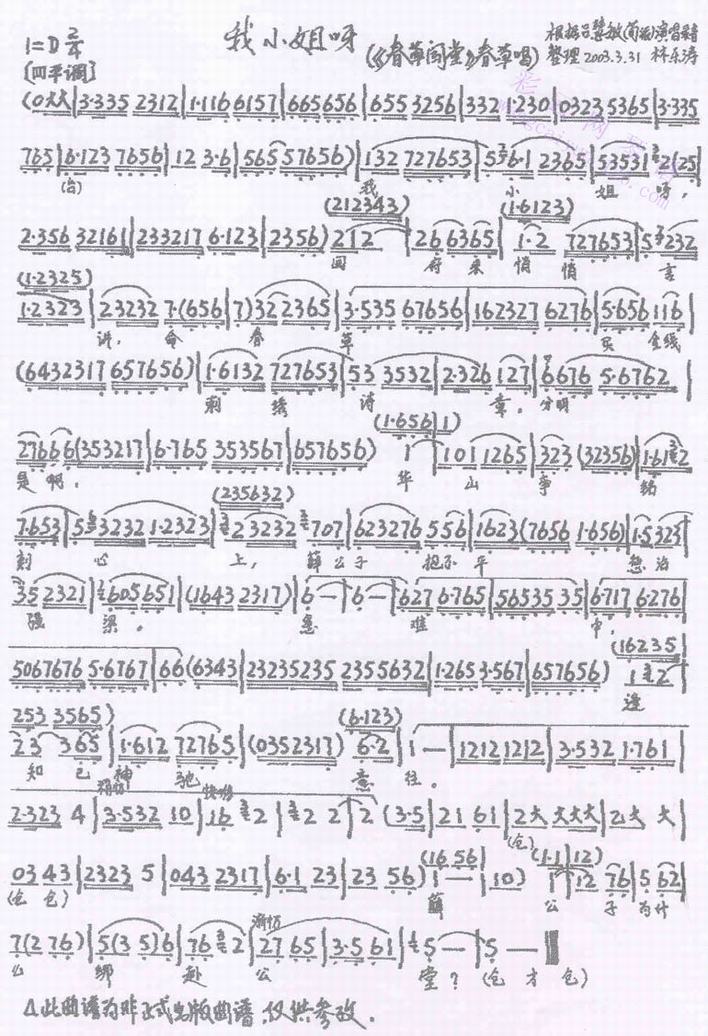 我小姐呀
1=D 2/4
(《春草闯堂》春草唱)
根据吕慧敏(荀派)演唱录音
整理 2003.3.31 林乐涛
[四平调]
(0大大|3·335 2312|1·116 6157|665656|655 3256|332 1·230|0323 5365|3·335
765|6·123 7656|12 3·6|565 57656)|132 727653|5 3 6·1 2365|53531 3 2(25|
(台) 我 小 姐 呀,
(212343) (1·6123)
2·356 32161|233217 6·123|2356) 212|26 6365|1·2 727653|5 3 232
回 府 来 悄 悄 言
(1·2325)
1·2323|23232 7·(656|7)32 2365|3·535 67656|162327 6276|5·656 116|
讲, 命 春 草 买 金线
(6432317 657656)|1·6132 727653|53 3532|2·326 127|6676 5·6762|
刺 绣 诗 章, 分明
(1·656|1)
27666(353217|6·765 353567|657656) 1|101 1265|323 (32356)|1·61 2
是啊, 华 山 争 铭
(235632)
7·653|5 3232 1·2323|2 3232 707|623276 556|1623(7656 1·656)|1·5323
刻 心 上, 薛公子 抱不平 惩治
35 2321|605651|(1643 2317)|6 —|6 —|627 6·765|56535 35|6·717 6276|
强 梁。 急 难 中,
(16235
5067676 5·6767|66(6343|23235235 2355632|1·265 3·567|657656) 1 2
逢
253 3565) (6·123)
23 365|1·612 72765|(0352317) 6·2|1 —|1212 1212|3·532 1·761|
知 己 神 驰 意 往。
2·323 4|3·532 10|16 2|2 2|2 (3·5|21 61|2大 大大大|2大 大|
(仓)
(16 56) (1·1|12)
03 43|2323 5|043 2317|6·1 23|23 56) 1 —|10) 1|12 76|5 62|
(仓 仓) 薛 公 子 为什
7(2 76)|5(3 5)6|76 2|27 65|3·5 61|5 —|5 —‖
么 绑 赴 公 堂? (仓 才 仓)
△此曲谱为非正式出版曲谱,仅供参改.